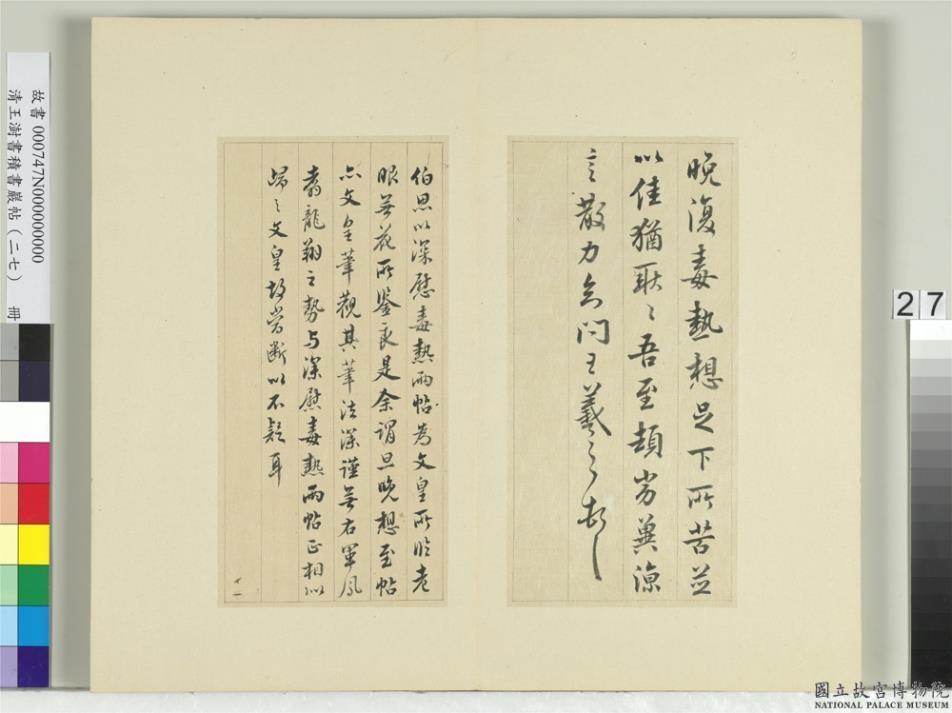 晚復毒熱想足下所苦並
以佳猶耿〻吾至頓劣冀涼
言散力知問王羲之頓首
伯思以深慰毒熱兩帖為文皇所臨老
眼無花所鑒良是余謂旦晚想至帖
亦文皇筆觀其筆法深謹無右軍鳳
翥龍翔之勢与深慰毒熱兩帖正相似
歸之文皇故當斷以不疑耳
十一
故書 000747N000000000
清王澍書積書巖帖(二七) 冊
27
國立故宮博物院
NATIONAL PALACE MUSEUM